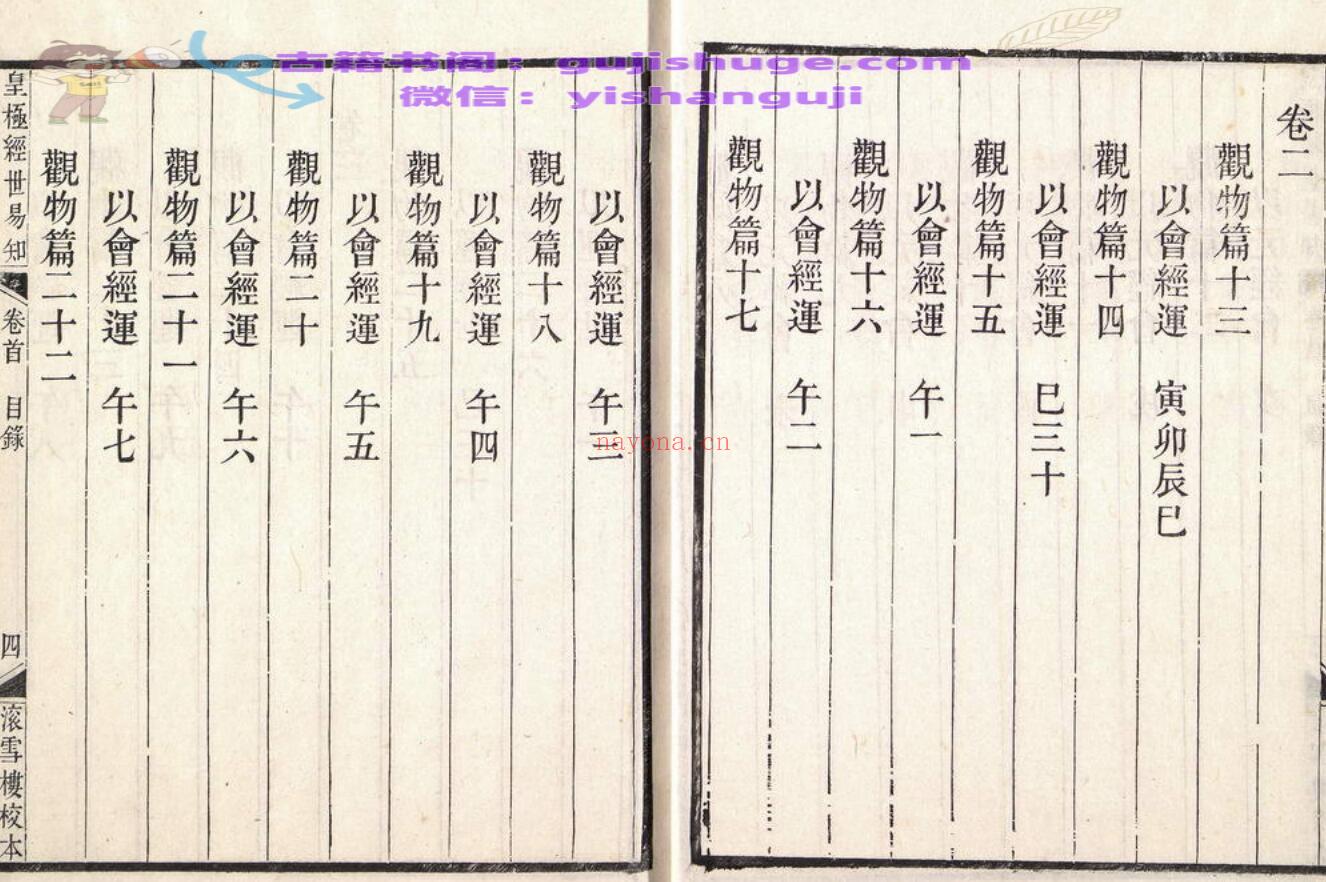 古籍书阁：gujishuge.com
微信：yishanguji
卷二
觀物篇十三
以會經運 寅卯辰巳
觀物篇十四
以會經運 巳三十
觀物篇十五
以會經運 午一
觀物篇十六
以會經運 午二
觀物篇十七
以會經運 午三
觀物篇十八
以會經運 午四
觀物篇十九
以會經運 午五
觀物篇二十
以會經運 午六
觀物篇二十一
以會經運 午七
觀物篇二十二
皇極經世易知 卷首 目錄 四 滚雪樓校本
nayona.cn